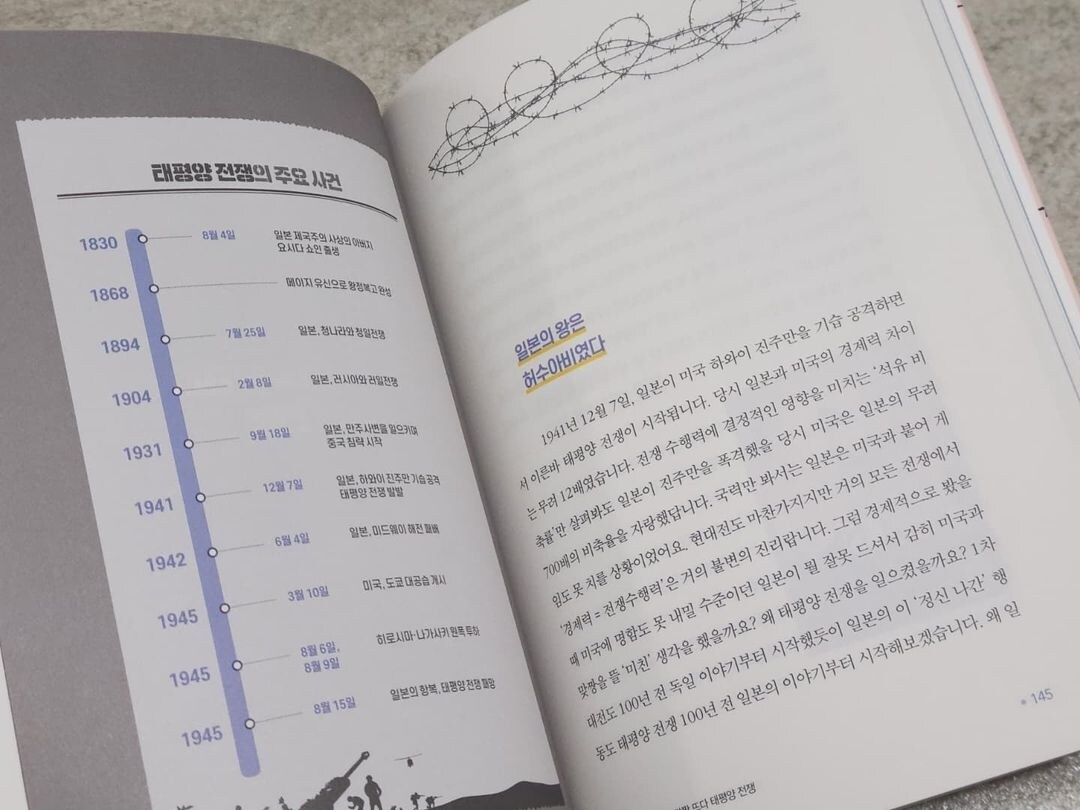 태평양 전쟁의 주요 사건
1830 8월 4일 일본 제국주의 사상의 아버지
요시다 쇼인 출생
1868 메이지 유신으로 왕정복고 완성
1894 7월 25일 일본, 청나라와 청일전쟁
1904 2월 8일 일본, 러시아와 러일전쟁
1931 9월 18일 일본, 만주사변을 일으키며
중국 침략 시작
1941 12월 7일 일본, 하와이 진주만 기습 공격
태평양 전쟁 발발
1942 6월 4일 일본, 미드웨이 해전 패배
1945 3월 10일 미국, 도쿄 대공습 개시
1945 8월 6일, 히로시마·나가사키 원폭 투하
8월 9일
1945 8월 15일 일본의 항복, 태평양 전쟁 패망
일본의 왕은
허수아비였다
1941년 12월 7일, 일본이 미국 하와이 진주만을 기습 공격하면
서 이른바 태평양 전쟁이 시작됩니다. 당시 일본과 미국의 경제력 차이
는 무려 12배였습니다. 전쟁 수행력에 결정적인 영향을 미치는 ‘석유 비
축률’만 살펴봐도 일본이 진주만을 폭격했을 당시 미국은 일본의 무려
700배의 비축율을 자랑했답니다. 국력만 봐서는 일본은 미국과 붙어 게
임도 못 치를 상황이었어요. 현대전도 마찬가지지만 거의 모든 전쟁에서
‘경제력 = 전쟁수행력’은 거의 불변의 진리랍니다. 그럼 경제적으로 봤을
때 미국에 명함도 못 내밀 수준이던 일본이 뭘 잘못 드셔서 감히 미국과
맞짱을 뜰 ‘미친’ 생각을 했을까요? 왜 태평양 전쟁을 일으켰을까요? 1차
대전도 100년 전 독일 이야기부터 시작했듯이 일본의 이 ‘정신 나간’ 행
동도 태평양 전쟁 100년 전 일본의 이야기부터 시작해보겠습니다. 왜 일
또다 태평양 전쟁
145